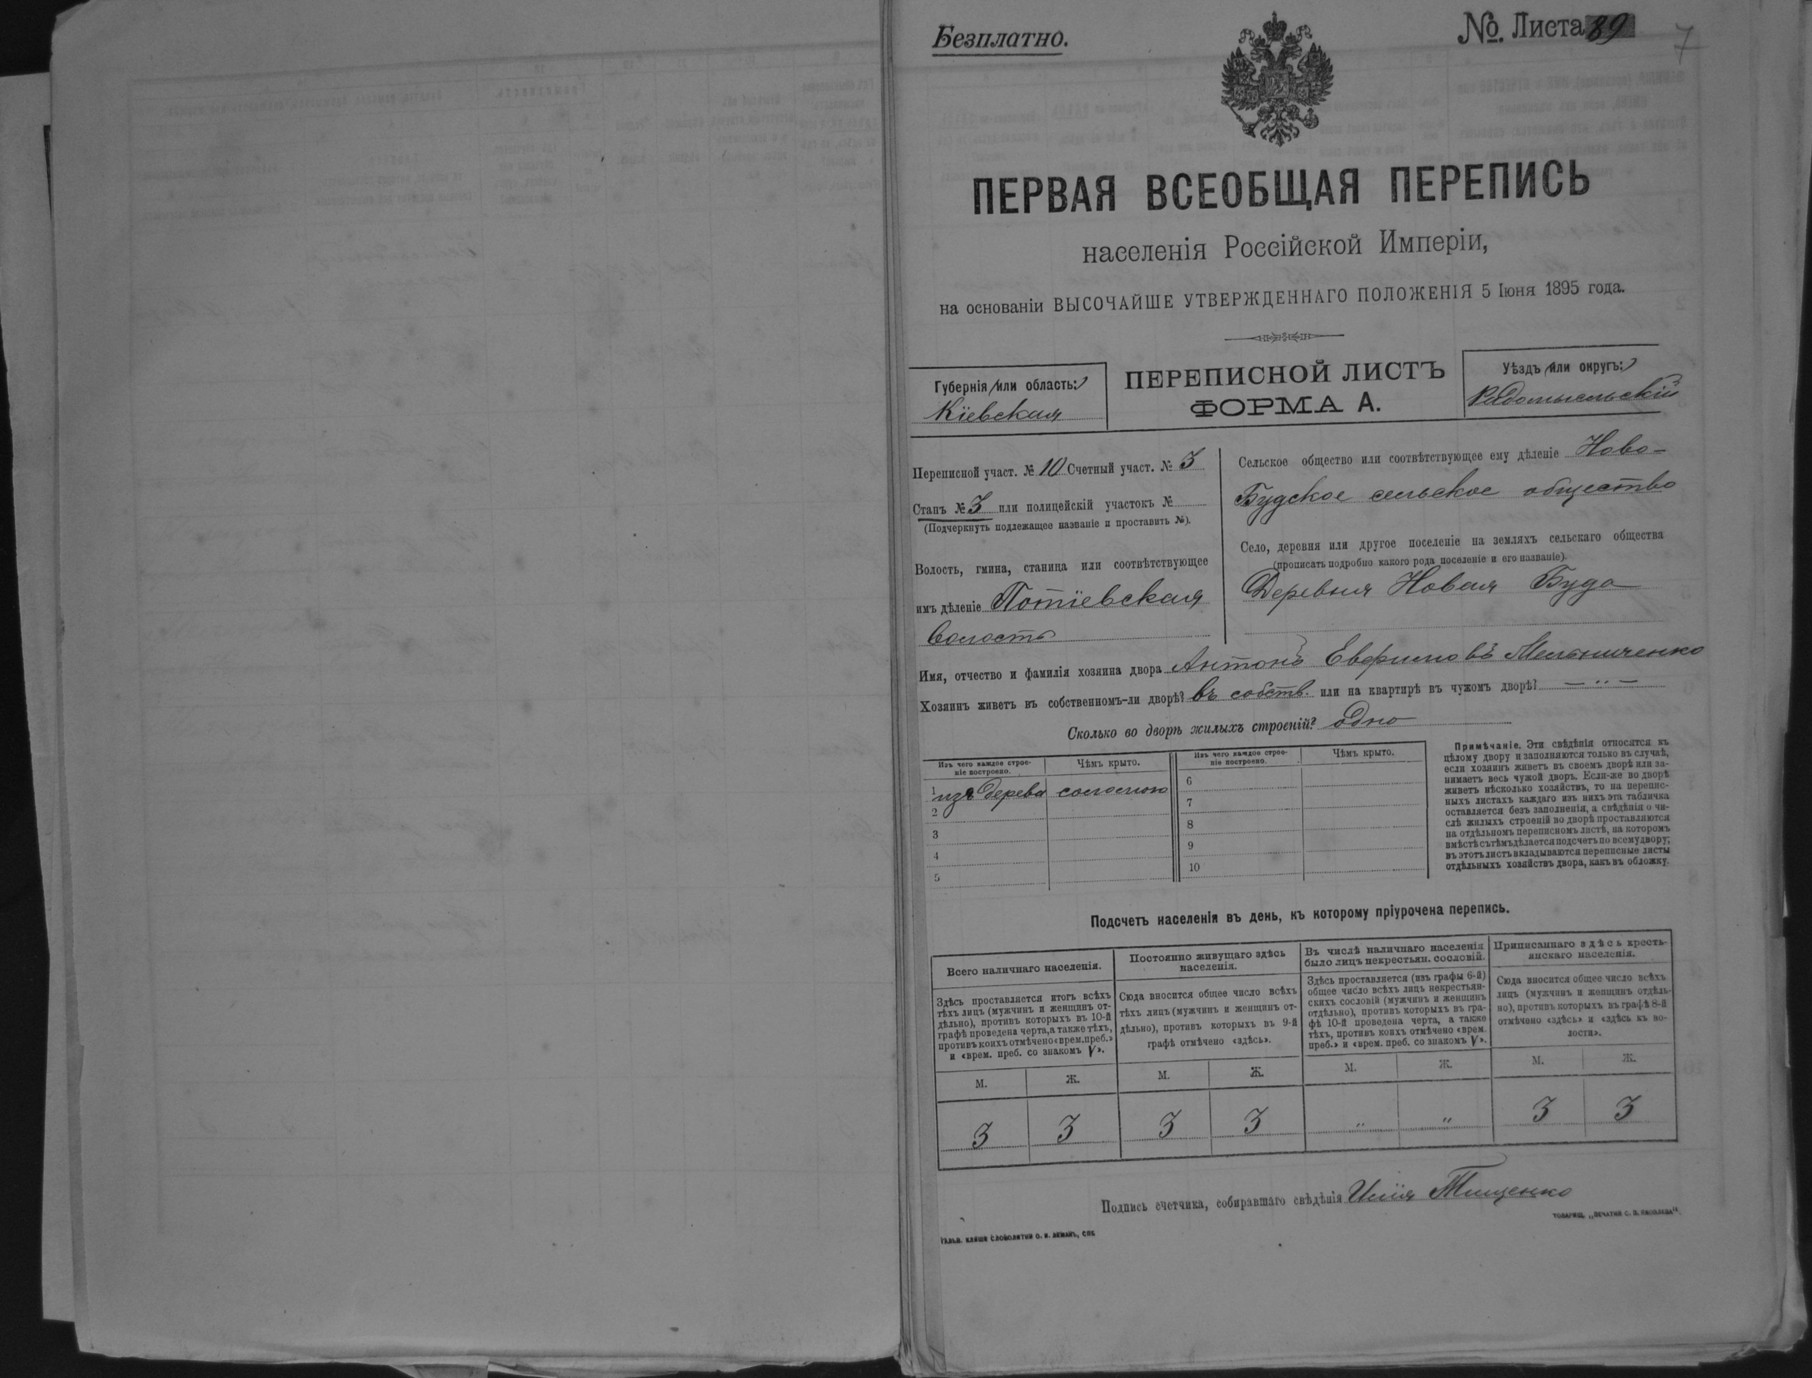 Безплатно.
№. Листа 89
7
ПЕРВАЯ ВСЕОБЩАЯ ПЕРЕПИСЬ
населенія Россійской Имперіи,
на основаніи ВЫСОЧАЙШЕ УТВЕРЖДЕННАГО ПОЛОЖЕНІЯ 5 Іюня 1895 года.
Губернія или область:
Кіевская
ПЕРЕПИСНОЙ ЛИСТЪ
ФОРМА А.
Уѣздъ или округъ:
Радомысльскій
Переписной участ. № 10 Счетный участ. № 3
Станъ № 3 или полицейскій участокъ №
(Подчеркнуть подлежащее названіе и проставить №).
Волость, гмина, станица или соотвѣтствующее
имъ дѣленіе Потіевская
волость
Сельское общество или соотвѣтствующее ему дѣленіе Ново-
Будское сельское общество
Село, деревня или другое поселеніе на земляхъ сельскаго общества
(прописать подробно какого рода поселеніе и его названіе).
Деревня Новая Буда
Имя, отчество и фамилія хозяина двора Антонъ Евфимовъ Мельниченко
Хозяинъ живетъ въ собственномъ-ли дворѣ? въ собств. или на квартирѣ въ чужомъ дворѣ? — „ —
Сколько во дворѣ жилыхъ строеній? одно
Изъ чего каждое строе-
ніе построено.
Чѣмъ крыто.
1 изъ дерева соломою
2
3
4
5
Изъ чего каждое строе-
ніе построено.
Чѣмъ крыто.
6
7
8
9
10
Примѣчаніе. Эти свѣдѣнія относятся къ
цѣлому двору и заполняются только въ случаѣ,
если хозяинъ живетъ въ своемъ дворѣ или за-
нимаетъ весь чужой дворъ. Если-же во дворѣ
живетъ нѣсколько хозяйствъ, то на перепис-
ныхъ листахъ каждаго изъ нихъ эта табличка
оставляется безъ заполненія, а свѣдѣнія о чи-
слѣ жилыхъ строеній во дворѣ проставляются
на отдѣльномъ переписномъ листѣ, на которомъ
вмѣстѣ съ тѣмъ дѣлается подсчетъ по всему двору;
въ этотъ листъ вкладываются переписные листы
отдѣльныхъ хозяйствъ двора, какъ въ обложку.
Подсчетъ населенія въ день, къ которому пріурочена перепись.
Всего наличнаго населенія.
Здѣсь проставляется итогъ всѣхъ
тѣхъ лицъ (мужчинъ и женщинъ от-
дѣльно), противъ которыхъ въ 10-й
графѣ проведена черта, а также тѣхъ,
противъ коихъ отмѣчено «врем. преб.»
и «врем. преб. со знакомъ V».
М. Ж.
3 3
Постоянно живущаго здѣсь
населенія.
Сюда вносится общее число всѣхъ
тѣхъ лицъ (мужчинъ и женщинъ от-
дѣльно), противъ которыхъ въ 9-й
графѣ отмѣчено «здѣсь».
М. Ж.
3 3
Въ числѣ наличнаго населенія
было лицъ некрестьян. сословій.
Здѣсь проставляется (изъ графы 6-й)
общее число всѣхъ лицъ некрестьян-
скихъ сословій (мужчинъ и женщинъ
отдѣльно), противъ которыхъ въ гра-
фѣ 10-й проведена черта, а также
тѣхъ, противъ коихъ отмѣчено «врем.
преб.» и «врем. преб. со знакомъ V».
М. Ж.
„ „
Приписаннаго здѣсь кресть-
янскаго населенія.
Сюда вносится общее число всѣхъ
лицъ (мужчинъ и женщинъ отдѣль-
но), противъ которыхъ въ графѣ 8-й
отмѣчено «здѣсь» и «здѣсь къ во-
лости».
М. Ж.
3 3
Подпись счетчика, собиравшаго свѣдѣнія Илія Тищенко
ГАЛЬВ. КЛИШЕ СЛОВОЛИТНИ О. И. ЛЕМАНЪ, СПБ
ТОВАРИЩ. „ПЕЧАТНЯ С. П. ЯКОВЛЕВА".